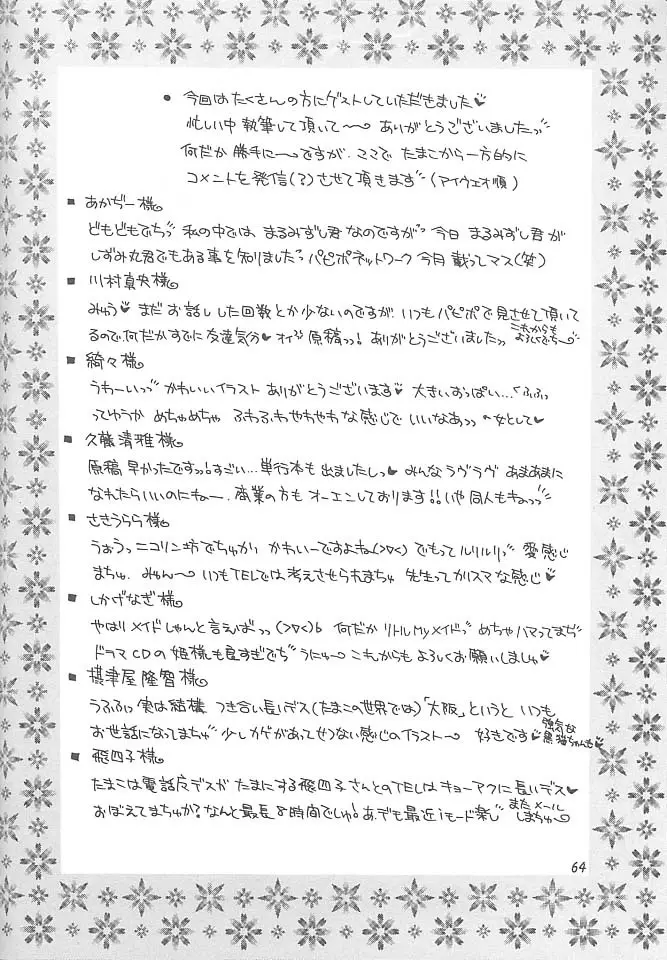 ● 今回はたくさんの方にゲストしていただきました♥
忙しい中 執筆して頂いて〜 ありがとうございましたッ
何だか 勝手に〜ですが、ココで たまこから一方的に
コメントを発信(?)させて頂きます (アイウエオ順)
■ あかぢー様
どもどもでちッ 私の中では、まるみずし君 なのですが 今日 まるみずし君が
しずみ丸君でもある事を知りましたッ パピポネットワーク 今月 載ってマス(笑)
■ 川村真央様
みゅう♥ まだ お話しした回数とか少ないのですが、いつもパピポで見させて頂いて
るので、何だかすでに友達気分♥ 原稿ッ! ありがとうございましたッ これからも
よろしくでち〜
■ 綺々様
うわーいッ かわいいイラスト ありがとうございます♥ 大きいおっぱい…くふふッ
ってゆうか めちゃめちゃ ふわふわやわやわな感じで いいなあッ 女として♥
■ 久藤清雅様
原稿 早かったですッ!すごい…単行本も出ましたしッ♥ みんなラヴラヴ あまあまに
なれたらいいのにキュー、商業の方も オーエンしております!!いや 同人もキュッ
■ ささうらら様
うぉうッ ニコリン坊でちゅかッ かわいーですよね(>▽<) でもって ルリルリッ 愛感じ
まちゅ、みゅん〜 いつもTELでは考えさせられまちゅ 先生ってカリスマな感じ♥
■ しかげなぎ様
やはり メイドしゃんと言えばッ (>▽<)b 何だか リトルMyメイドッ めちゃハマってまぢ
ドラマCDの姫様も良すぎでち うにゅ〜 これからも よろしくお願いしましゅ♥
■ 摂津屋隆智様
うふふッ 実は結構 つき合い長いデス(たまこの世界では)「大阪」というと いつも
お世話になってまちゅ 少しカゲがあってせつない感じのイラスト〜 好きです♥ 強気な
黒猫ちゃんも♥
■ 飛四子様
たまこは電話反デスが たまにする飛四子さんとのTELはキョーアクに長いデス♥
おぼえてまちゅか?なんと最長8時間でしゅ!あ、でも最近iモード楽し また メール
しまちゅ〜
64